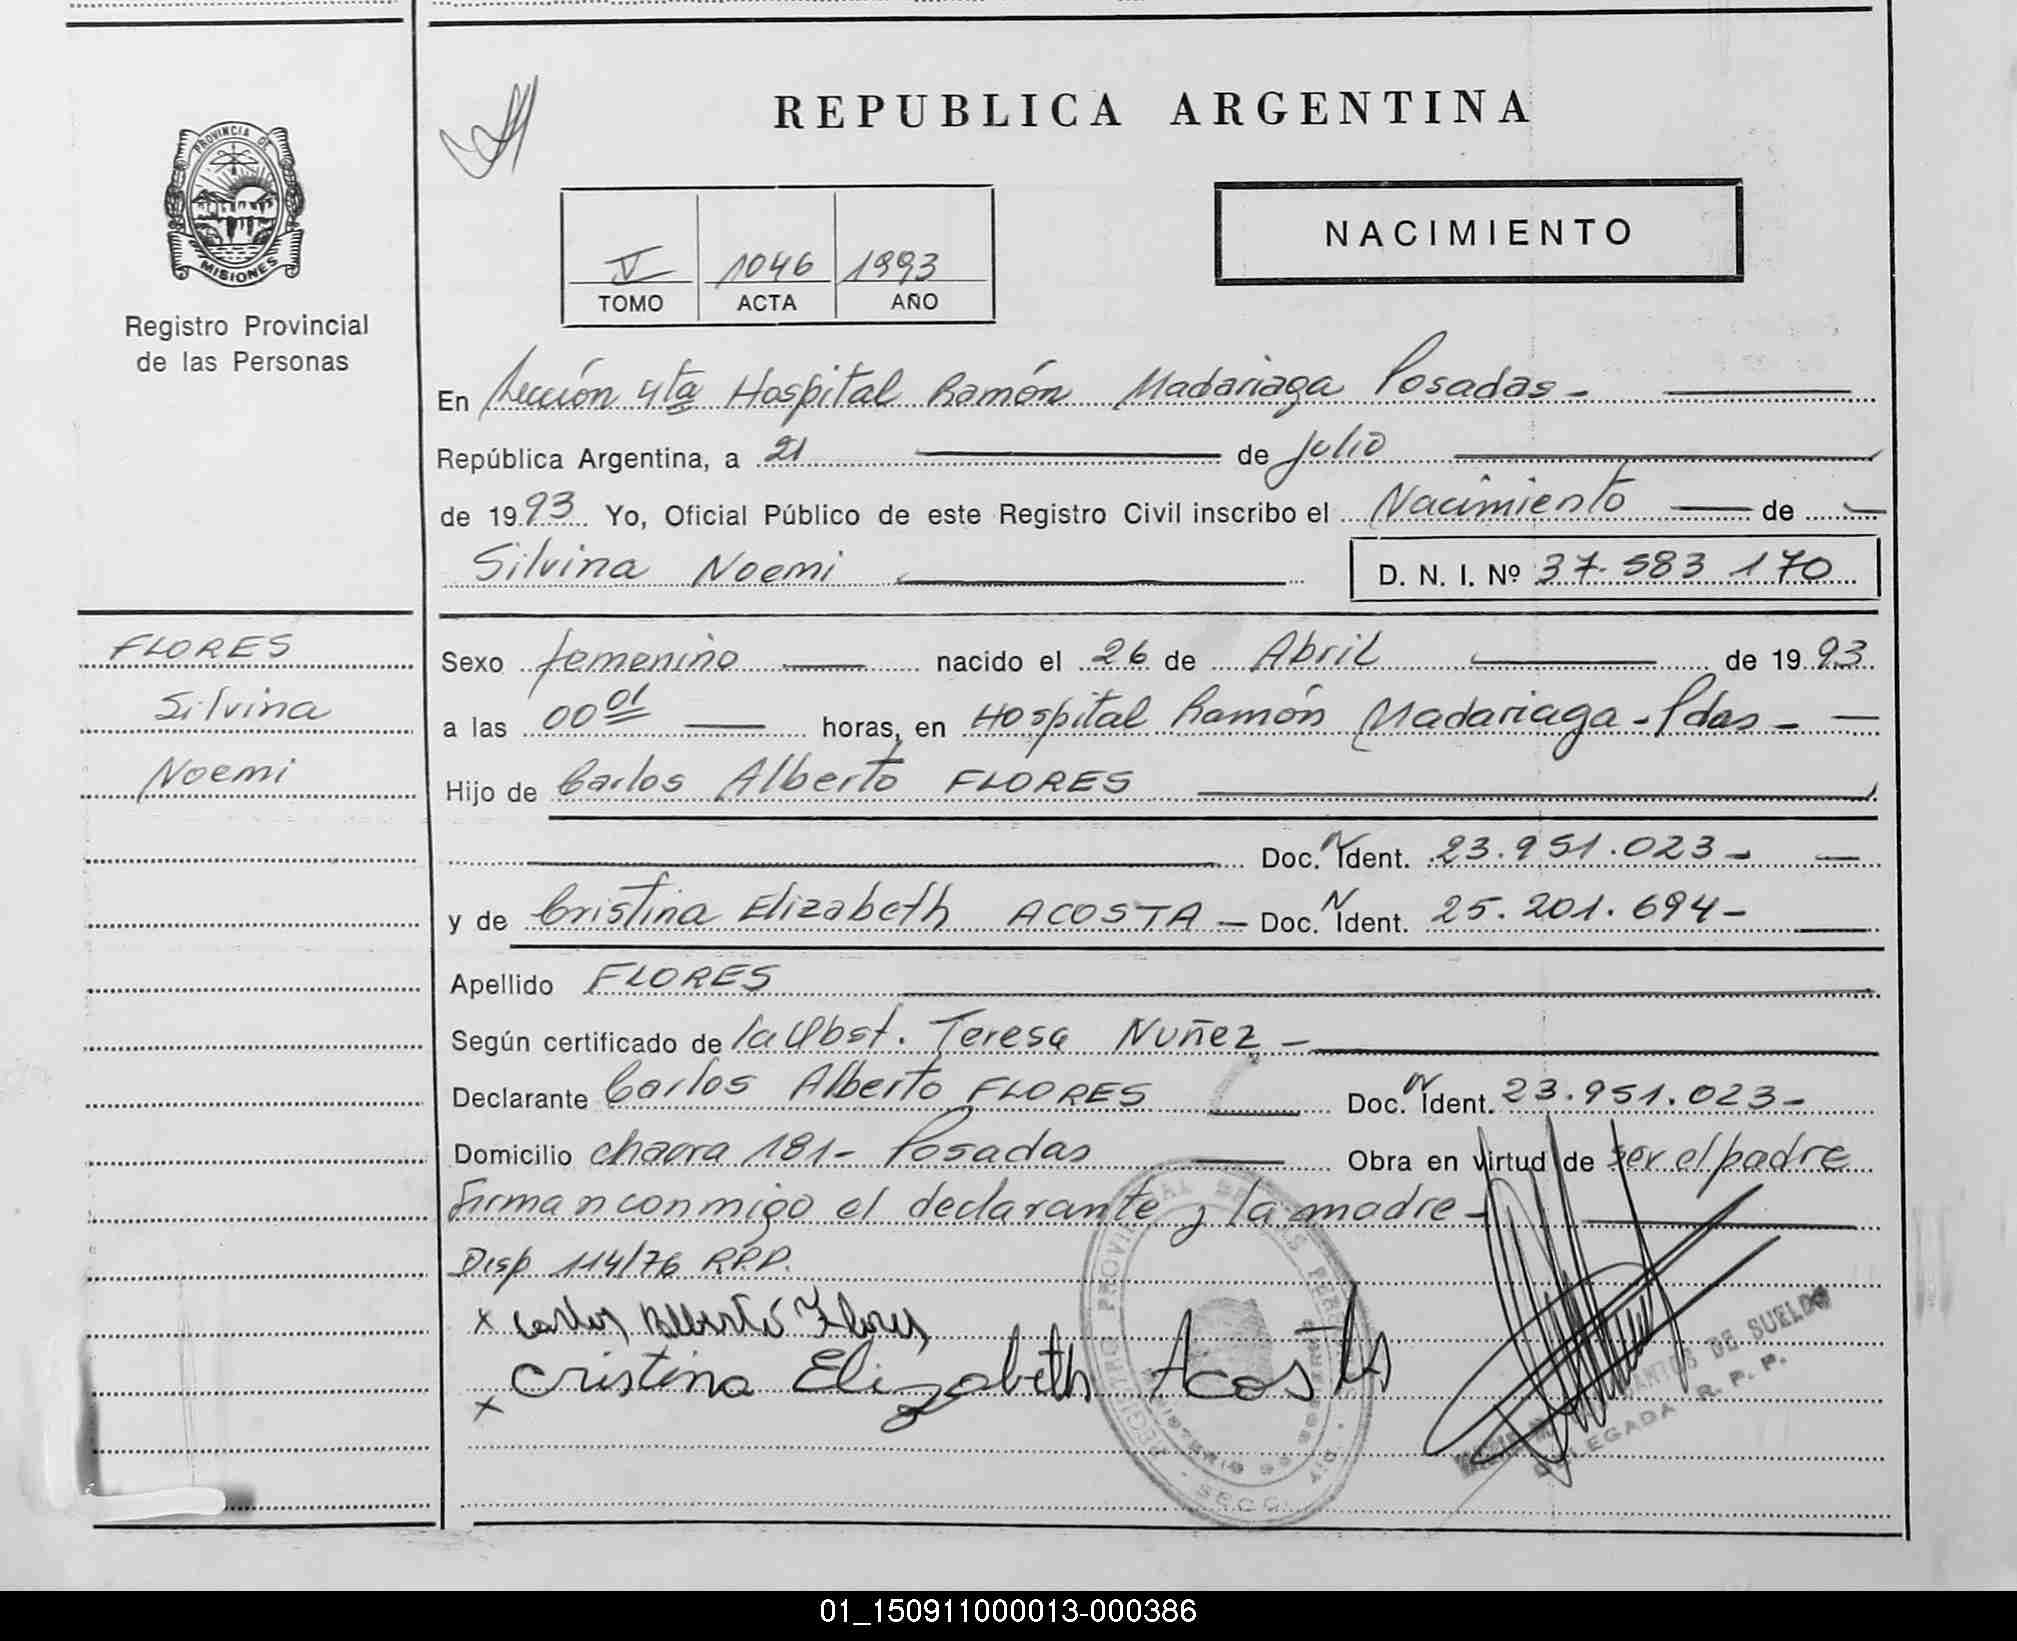 REPUBLICA ARGENTINA
PROVINCIA DE
MISIONES
Registro Provincial
de las Personas
NACIMIENTO
V 1046 1993
TOMO ACTA AÑO
En Sección 4ta Hospital Ramón Madariaga Posadas -
República Argentina, a 21 de Julio
de 1993 Yo, Oficial Público de este Registro Civil inscribo el Nacimiento de
Silvina Noemi D. N. I. Nº 37.583 170
FLORES
Silvina
Noemi
Sexo femenino nacido el 26 de Abril de 1993
a las 00 01 horas, en Hospital Ramón Madariaga - Pdas -
Hijo de Carlos Alberto FLORES
Doc. N Ident. 23.951.023 -
y de Cristina Elizabeth ACOSTA - Doc. N Ident. 25.201.694 -
Apellido FLORES
Según certificado de la Obst. Teresa Nuñez -
Declarante Carlos Alberto FLORES Doc. N Ident. 23.951.023 -
Domicilio chacra 181 - Posadas Obra en virtud de ser el padre
firman conmigo el declarante y la madre -
Disp 114/76 R.P.P.
x Carlos Alberto Flores
x Cristina Elizabeth Acosta
REGISTRO PROVINCIAL DE LAS PERSONAS
SECC.
DE SUELDO
DELEGADA R. P. P.
01_150911000013-000386